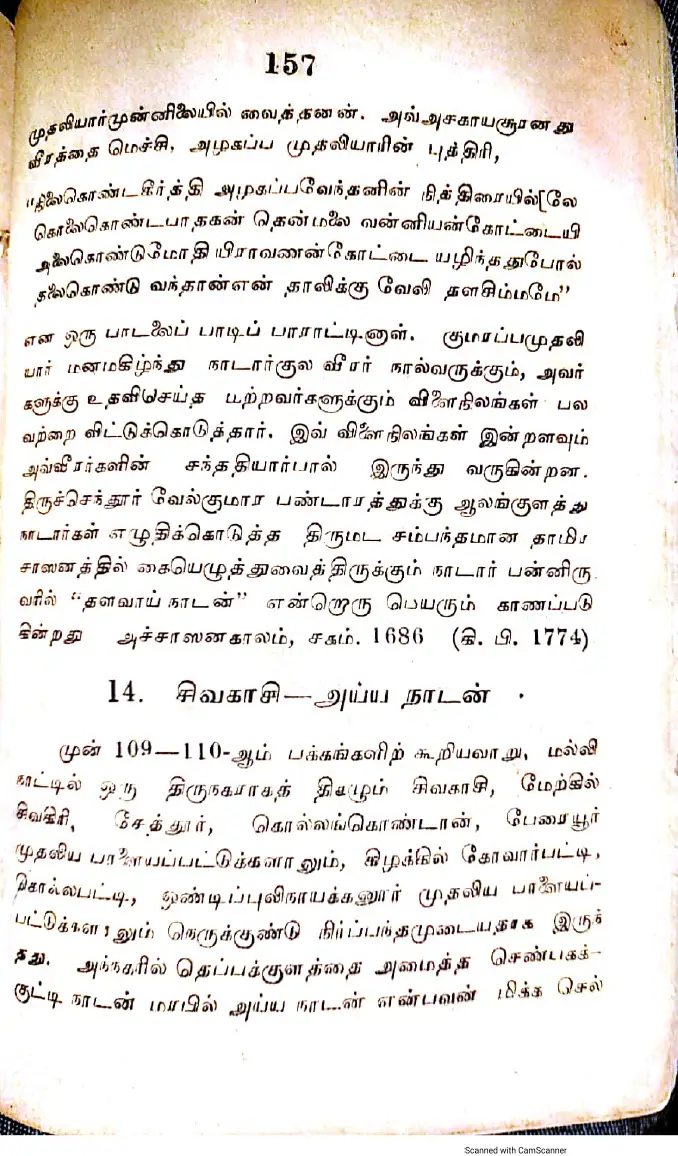 157
முதலியார்முன்னிலையில் வைத்தனன். அவ்அசகாயசூரனது
வீரத்தை மெச்சி, அழகப்ப முதலியாரின் புத்திரி,
கீர்த்தி அழகப்பவேந்தனின் நித்திரையில்[லே
கொலைகொண்டபாதகன் தென்மலை வன்னியன்கோட்டையி
அலைகொண்டுமோதி யிராவணன்கோட்டை யழிந்ததுபோல்
தலைகொண்டு வந்தான்என் தாலிக்கு வேலி தளசிம்மமே"
என ஒரு பாடலைப் பாடிப் பாராட்டினாள். குமாரப்பமுதலி
யார் மனமகிழ்ந்து நாடார்குல வீரர் நால்வருக்கும், அவர்
களுக்கு உதவிசெய்த மற்றவர்களுக்கும் விளைநிலங்கள் பல
வற்றை விட்டுக்கொடுத்தார். இவ் விளைநிலங்கள் இன்றளவும்
அவ்வீரர்களின் சந்ததியார்பால் இருந்து வருகின்றன.
திருச்செந்தூர் வேல்குமார பண்டாரத்துக்கு ஆலங்குளத்து
நாடார்கள் எழுதிக்கொடுத்த திருமட சம்பந்தமான தாமிர
சாஸனத்தில் கையெழுத்துவைத்திருக்கும் நாடார் பன்னிரு
வரில் "தளவாய் நாடன்" என்றொரு பெயரும் காணப்படு
கின்றது அச்சாஸனகாலம், சகம். 1686 (கி. பி. 1774)
14. சிவகாசி—அய்ய நாடன்
முன் 109—110-ஆம் பக்கங்களிற் கூறியவாறு, மல்லி
நாட்டில் ஒரு திருநகராகத் திகழும் சிவகாசி, மேற்கில்
சிவகிரி, சேத்தூர், கொல்லங்கொண்டான், பேரையூர்
முதலிய பாளையப்பட்டுக்களானும், கிழக்கில் கோவார்பட்டி,
கொல்லபட்டி, ஒண்டிப்புலிநாயக்கனூர் முதலிய பாளையப்-
பட்டுக்களானும் நெருக்குண்டு நிர்ப்பந்தமுடையதாக இருந்
தது. அந்நகரில் தெப்பக்குளத்தை அமைத்த செண்பகக்-
குட்டி நாடன் மரபில் அய்ய நாடன் என்பவன் மிக்க செல்
Scanned with CamScanner